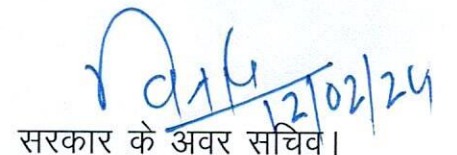 12/02/24
सरकार के अवर सचिव।